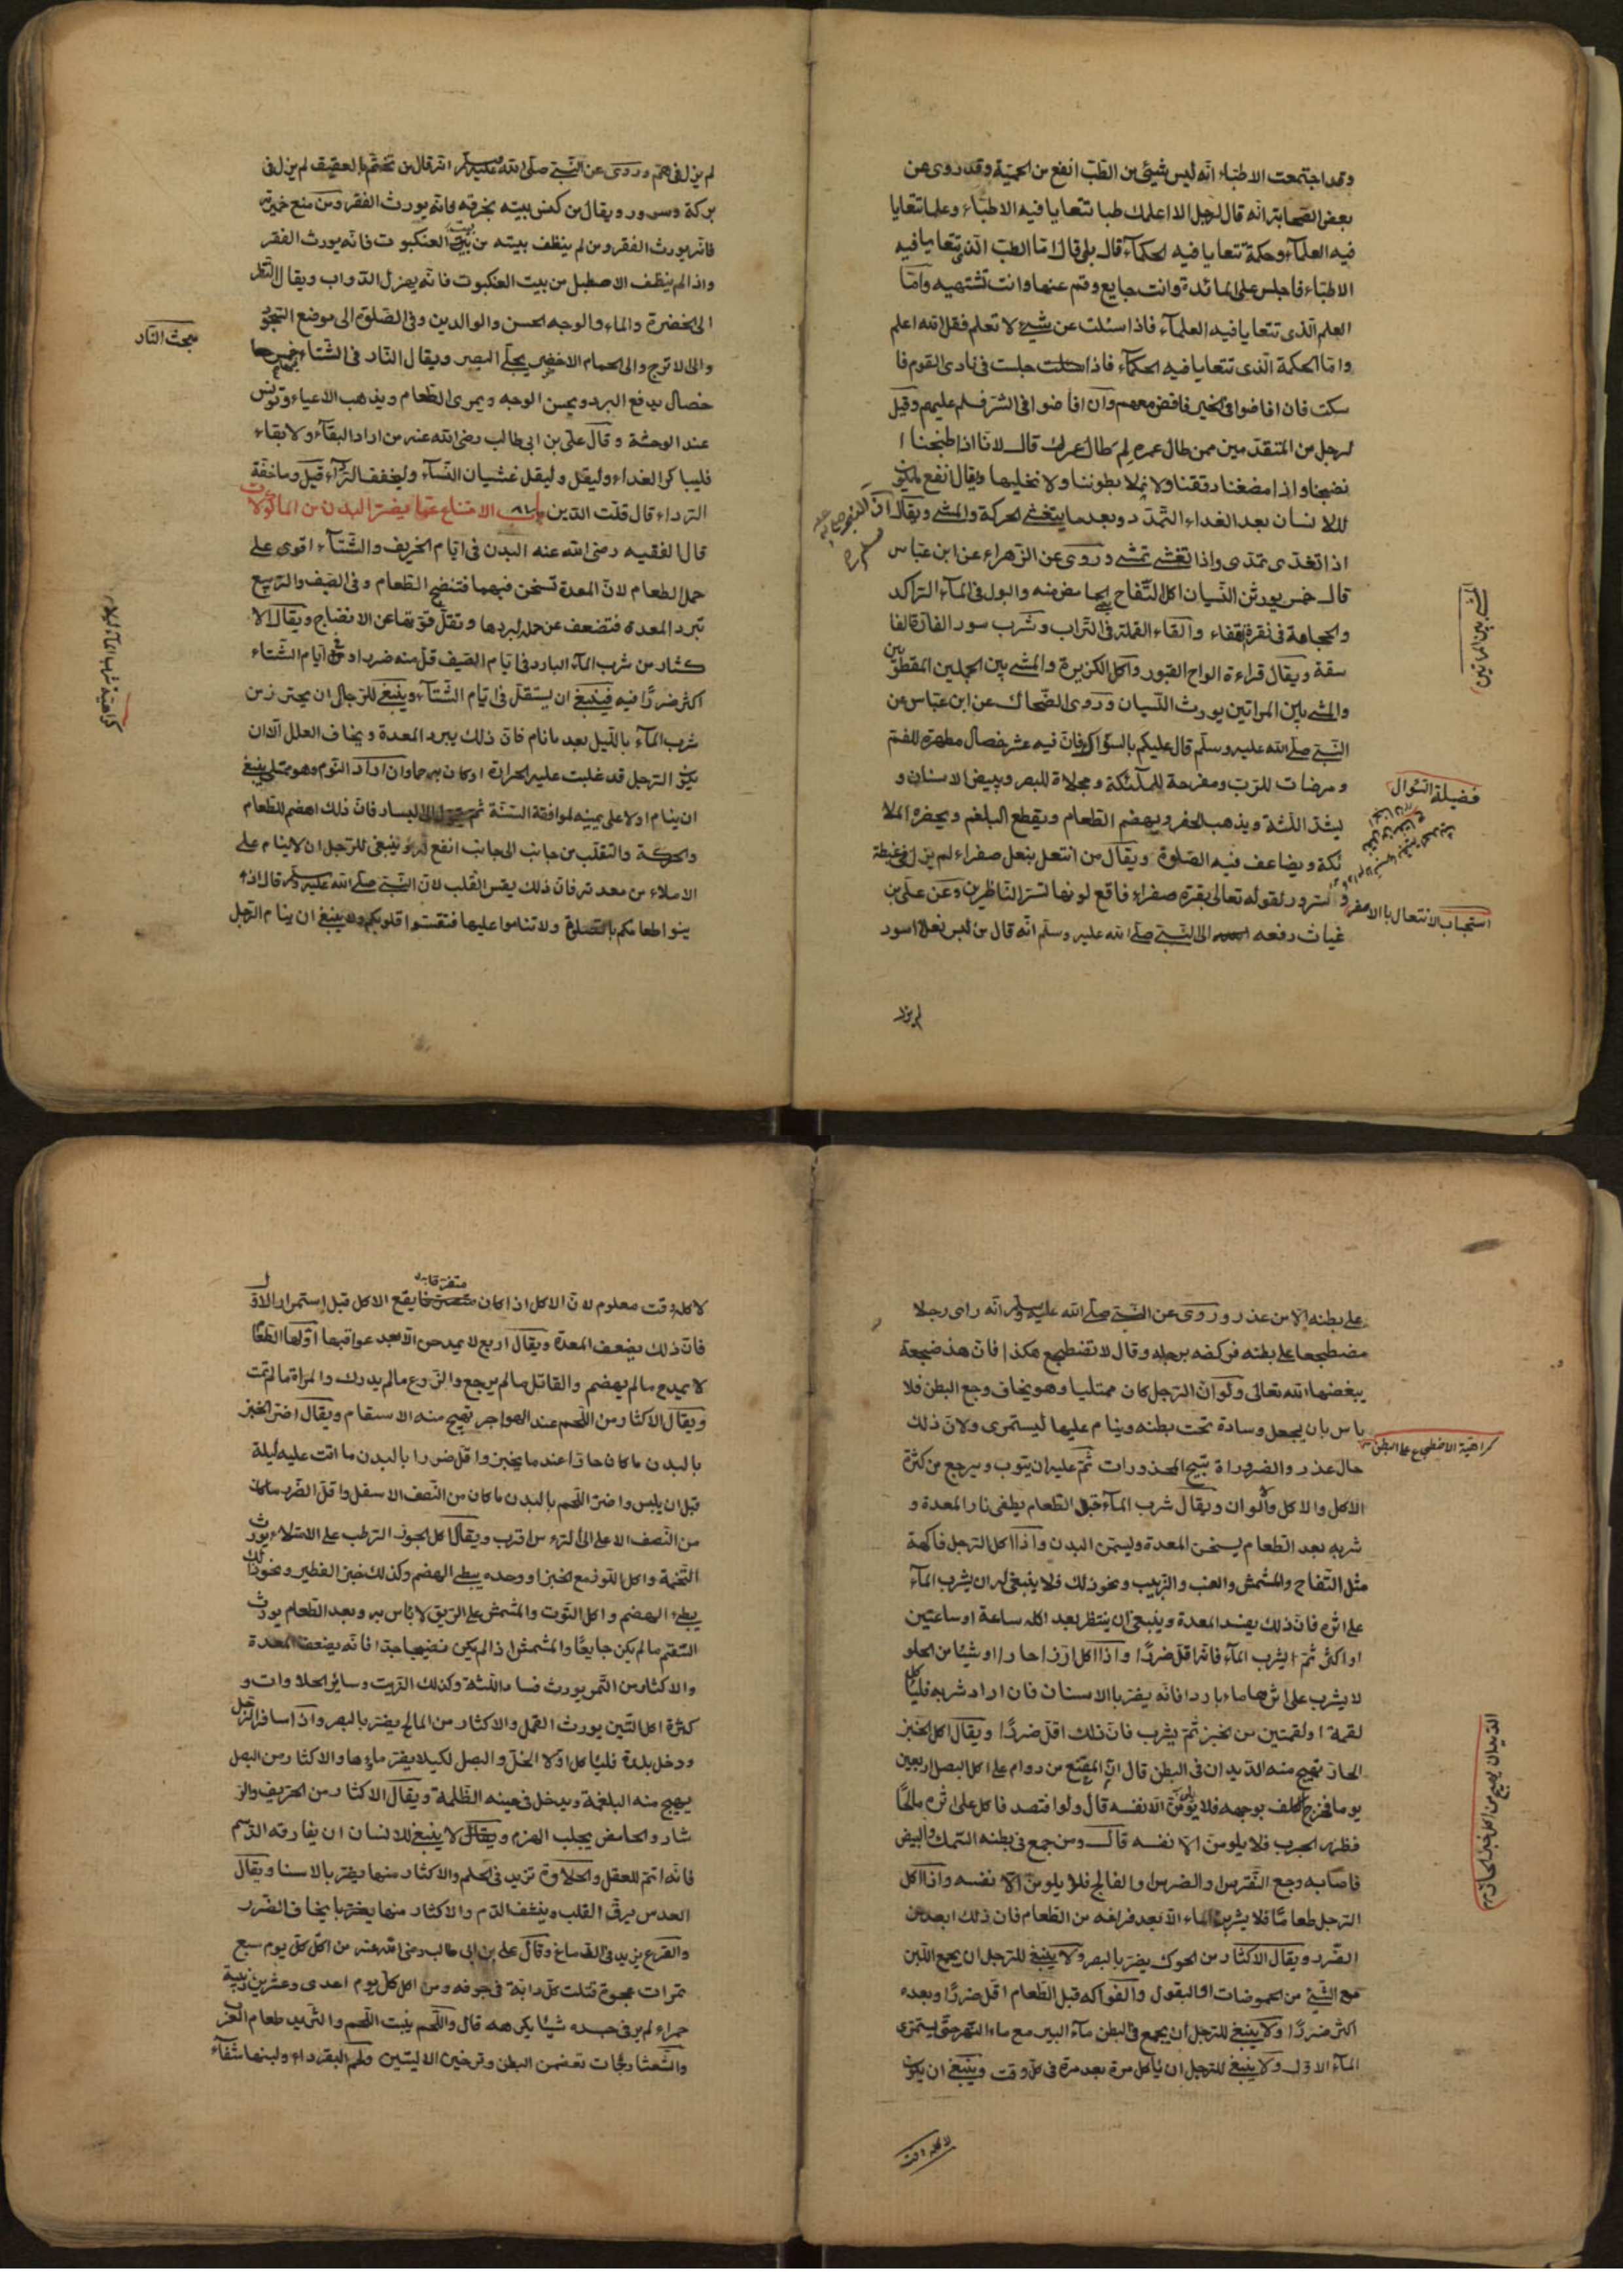 وقد اجتمعت الاطباء انّه ليس شيئ من الطّبّ انفع من الحميّة وقد روى عن
بعض الصّحابة انّه قال لرجل الا اعلمك طبا تتعايا فيه الاطبّاء وعلما تتعايا
فيه العلمآء وحكمة تتعايا فيه الحكمآء قال بلى قال امّا الطبّ الّذى تتعايا فيه
الاطبّاء فاجلس على المائدة وانت جايع وقم عنها وانت تشتهيه وامّا
العلم الّذى تتعايا فيه العلمآء فاذا سئلت عن شيئ لا تعلم فقل الله اعلم
وامّا الحكمة الّذى تتعايا فيه الحكمآء فاذا جلست فى نادى القوم فا
سكت فان افاضوا فى الخير فافض معهم وان افاضوا فى الشّر فسلم عليهم وقيل
لرجل من المتقدّمين ممن طال عمره لم طال عمرك قال لانّا اذا طبخنا ا
نضجنا واذا مضغنا دققنا ولا نملا بطوننا ولا نخليها ويقال انفع ما يكون
للانسان بعد الغداء التّمدّد وبعد ما يتغشى الحركة والمشى ويقال انّ النبى
اذا تغدّى تمدّى واذا تعشى تمشى وروى عن الزّهراء عن ابن عبّاس
قال خمس يورثن النّسيان اكل التّفاح الحامض منه والبول فى المآء الرّاكد
والحجامة فى نقرة القفاء والقاء القملة فى التّراب وشرب سور الفارة الفا
سقة ويقال قراءة الواح القبور واكل الكزبرة والمشى بين الجملين المقطرين
والمشى بين المراتين يورث النّسيان وروى الضّحاك عن ابن عبّاس عن
النّبى صلّى الله عليه وسلّم قال عليكم بالسّواك فانّ فيه عشر خصال مطهرة للفم
ومرضات للرّبّ ومفرحة للملئكة ومجلاة للبصر ويبيض الاسنان و
يشدّ اللّثة ويذهب الحفر ويهضم الطّعام ويقطع البلغم ويحضره الملا
ئكة ويضاعف فيه الصّلوة ويقال من انتعل بنعل صفراء لم يزل فى غبطة
وسرور لقوله تعالى بقرة صفراء فاقع لونها تسرّ النّاظرين وعن علىّ بن
غياث رفعه الى النّبى صلّى الله عليه وسلّم انّه قال من لبس نعلا اسود
لم يزل
المشى بين المراتين
فضيلة السّواك
استحباب الانتعال بالاصفر
لم يزل فى همّ وروى عن النّبى صلّى الله عليه وسلّم انّه قال من تختّم بالعقيق لم يزل فى
بركة وسرور ويقال من كنس بيته بخرقة فانّه يورث الفقر ومن منع خميرته
فانّه يورث الفقر ومن لم ينظف بيته من بيت العنكبوت فانّه يورث الفقر
واذا لم ينظف الاصطبل من بيت العنكبوت فانّه يهزل الدّواب ويقال النّظر
الى الخضرة والماء والوجه الحسن والوالدين وفى الصّلوة الى موضع السّجود
والى الاترج والى الحمام الاخضر يجلّى البصر ويقال النّار فى الشّتاء
خصال يدفع البرد ويحسن الوجه ويمرى الطّعام ويذهب الاعياء وتونس
عند الوحشة وقال علىّ بن ابى طالب رضى الله عنه من اراد البقآء ولا بقاء
فليباكر الغداء وليقل وليقل غشيان النّسآء وليخفف الرّداء قيل وما خفّة
الرّداء قال قلّت الدّين باب الامتناع عمّا يضرّ البدن من الماكولات
قال الفقيه رضى الله عنه البدن فى ايّام الخريف والشّتآء اقوى على
حمل الطعام لانّ المعدة تسخن فيهما فتنضج الطّعام وفى الصّيف والرّبيع
تبرد المعدة فتضعف عن حمله لبردها وتقلّ قوتها عن الانضاج ويقال الا
كثار من شرب المآء البارد فى ايّام الصّيف قلّ منه ضررا وفى ايّام الشّتاء
اكثر ضررًا فيه فينبغى ان يستقلّ فى ايّام الشّتآء وينبغى للرّجال ان يحترز من
شرب المآء بالليل بعد ما نام فانّ ذلك يبرد المعدة ويخاف العلل الا ان
يكون الرّجل قد غلبت عليه الحرارة او كان به حما وان اراد النّوم وهو ممتلى ينبغى
ان ينام اولا على يمينه لموافقة السّنّة ثمّ الى اليسار فانّ ذلك اهضم للطّعام
والحركة والتقلّب من جانب الى جانب انفع له وينبغى للرّجل ان لا ينام على
الاملاء من معدته فانّ ذلك يقس القلب لانّ النّبى صلّى الله عليه وسلّم قال اذا
ينوا طعامكم بالصّلوة ولا تناموا عليها فتقستوا قلوبكم ولا ينبغى ان ينام الرّجل
مبحث النّار
كراهيّة شرب المآء ليلا
على بطنه الّا من عذر وروى عن النّبى صلّى الله عليه وسلّم انّه راى رجلا
مضطجعا على بطنه فركضه برجله وقال لا تضطجع هكذا فانّ هذ ضجعة
يبغضها الله تعالى ولو انّ الرّجل كان ممتليا وهو يخاف وجع البطن فلا
باس بان يجعل وسادة تحت بطنه وينام عليها ليستمرى ولانّ ذلك
حال عذر والضروراة تبيح المحذورات ثمّ عليه ان يتوب ويرجع من كثرة
الاكل والاكل والوان ويقال شرب المآء قبل الطّعام يطفى نار المعدة و
شربه بعد الطّعام يسخن المعدة وليسمن البدن واذا اكل الرّجل فاكهة
مثل التّفاح والمشمش والعنب والزّبيب ونحو ذلك فلا ينبغى له ان يشرب المآء
على اثره فانّ ذلك يفسد المعدة وينبغى ان ينتظر بعد اكله ساعة او ساعتين
او اكثر ثمّ يشرب المآء فانّه اقلّ ضررًا واذا اكل ارزا حارا او شيئا من الحلو
لا يشرب على اثرهما ماء باردا فانّه يضر بالاسنان فان اراد شربه فلياكل
لقمة او لقمتين من الخبز ثمّ يشرب فانّ ذلك اقلّ ضررًا ويقال اكل الخبز
الحارّ تهيج منه الدّيدان فى البطن قال ابن المقنع من دوام على اكل البصل اربعين
يوما فخرج الكلف بوجهه فلا يلومنّ الّا نفسه قال ولو افتصد فاكل على اثره مالحًا
فظهر الجرب فلا يلومنّ الّا نفسه قال ومن جمع فى بطنه السّمك والبيض
فاصابه وجع النّقرس والضرس والفالج فلا يلومنّ الّا نفسه واذا اكل
الرّجل طعامًا فلا يشرب الماء الّا بعد فراغه من الطّعام فانّ ذلك ابعد من
الضّرر ويقال الاكثار من الحوك يضرّ بالبصر ولا ينبغى للرّجل ان يجمع اللّبن
مع الشّئ من الحموضات او البقول والفواكه قبل الطّعام اقلّ ضررًا وبعده
اكثر ضررًا ولا ينبغى للرّجل ان يجمع فى البطن مآء البير مع ماء النّهر حتّى يستمرى
المآء الاوّل ولا ينبغى للرّجل ان ياكل مرة بعد مرة فى كلّ وقت وينبغى ان يكون
لاكله وقت
كراهيّة الاضطجاع على البطن
الدّيدان يهيج من اكل خبز الحارّ
لاكله وقت معلوم لانّ الاكل اذا كان متفرقا يقع الاكل قبل استمرار الاوّل
فانّ ذلك يضعف المعدة ويقال اربع لا يمدحن الّا بعد عواقبها اوّلها الطّعام
لا يمدح ما لم يهضم والقاتل ما لم يرجع والزّرع ما لم يدرك والمراة ما لم تمت
ويقال الاكثار من اللّحم عند الهواجر تهيج منه الاسقام ويقال اضرّ الخبز
بالبدن ما كان حارّا عند ما يخبز واقلّ ضررا بالبدن ما اتت عليه ليلة
قبل ان يلبس واضرّ اللّحم بالبدن ما كان من النّصف الاسفل واقلّ الضّرر ما كان
من النّصف الاعلى الى الرء س اقرب ويقال اكل الجوز الرّطب على الامتلاء يورث
التّخمة واكل اللّوز مع الخبز او وحده يبطى الهضم وكذلك خبز الفطير ونحو ذلك
يبطء الهضم واكل التّوت والمشمش على الرّيق لا بأس به وبعد الطّعام يورث
السّقم ما لم يكن جايعًا والمشمش اذا لم يكن نضيجا جدّا فانّه يضعف المعدة
والاكثار من التّمر يورث فساد اللّثة وكذلك الزّبيب وساير الحلاوات و
كثرة اكل التّين يورث القمل والاكثار من المالح يضر بالبصر واذا سافر الرّجل
ودخل بلدة فلياكل اوّلا الخلّ والبصل لكيلا يضرّ ماءها والاكثار من البصل
يهيج منه البلغمة ويدخل فى عينه الظّلمة ويقال الاكثار من الحرّيف والر
شار والحامض يجلب الهرم ويقال لا ينبغى للانسان ان يفارقه الدّسم
فانّه اتمّ للعقل والحلاوة تزيد فى الحلم والاكثار منها يضر بالاسنا ويقال
العدس يرقّ القلب وينشف الدّم والاكثار منها يضر بما يخاف الضّرر
والقرع يزيد فى الدّماغ وقال على بن ابى طالب رضى الله عنه من اكل كلّ يوم سبع
تمرات عجوة قتلت كلّ دابّة فى جوفه ومن اكل كلّ يوم احدى وعشرين زبيبة
حمراء لم ير فى جسده شيئا يكرهه قال واللّحم ينبت اللّحم والثّريد طعام العرب
تعضمن البطن وترخين الاليتين ولحم البقر داء ولبنها شفآء